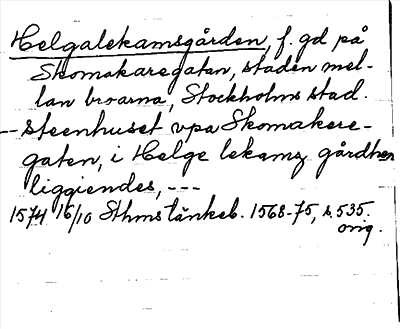 Helgalekamsgården, f. gd på
Skomakaregatan, staden mel-
lan broarna, Stockholms stad.
-- steenhuset vpa Skomakere-
gaten, i Helge lekamz gårdhen
liggiendes, ---
1574 16/10 Sthms tänkeb. 1568-75, s. 535.
orig.